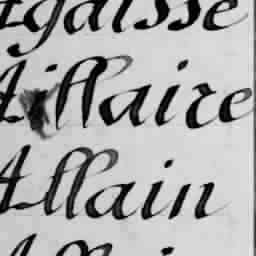 Agaisse
Aillaire
Allain